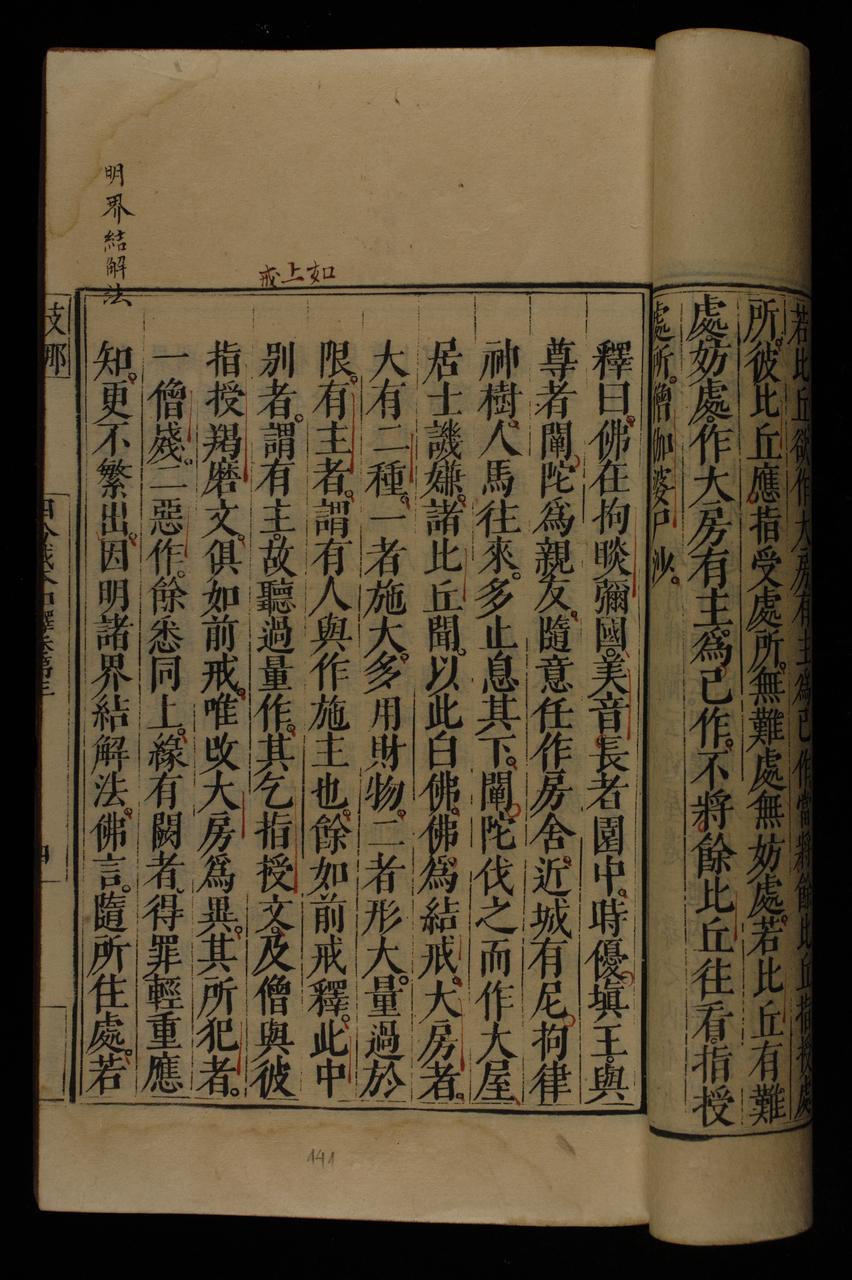 若比丘欲作大房有主爲己作當將餘比丘指授處
所。彼比丘應指受處所。無難處無妨處。若比丘有難
處妨處。作大房有主。爲己作。不將餘比丘往看。指授
處所。僧伽婆尸沙。
如上戒
釋曰。佛在拘睒彌國。美音長者園中。時優塡王。與
尊者闡陀爲親友。隨意任作房舍。近城有尼拘律
神樹。人馬往來。多止息其下。闡陀伐之而作大屋。
居士譏嫌。諸比丘聞。以此白佛。佛爲結戒。大房者。
大有二種。一者施大。多用財物。二者形大。量過於
限。有主者。謂有人與作施主也。餘如前戒釋。此中
别者。謂有主。故聽過量作。其乞指授文。及僧與彼
指授羯磨文。俱如前戒。唯改大房爲異。其所犯者。
一僧殘。二惡作。餘悉同上。緣有闕者。得罪輕重應
知。更不繁出。因明諸界結解法。佛言。隨所住處。若
明界結解法
支那
四分戒本如釋卷第三
四
141